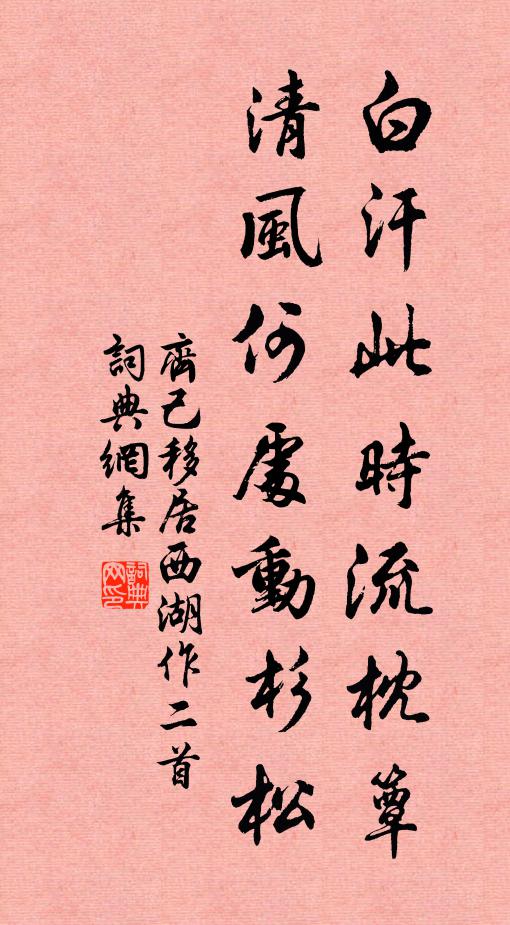 白汗此時流枕簟
清風何處動杉松
齊己移居西湖作二首
詞典網集
詞典网印